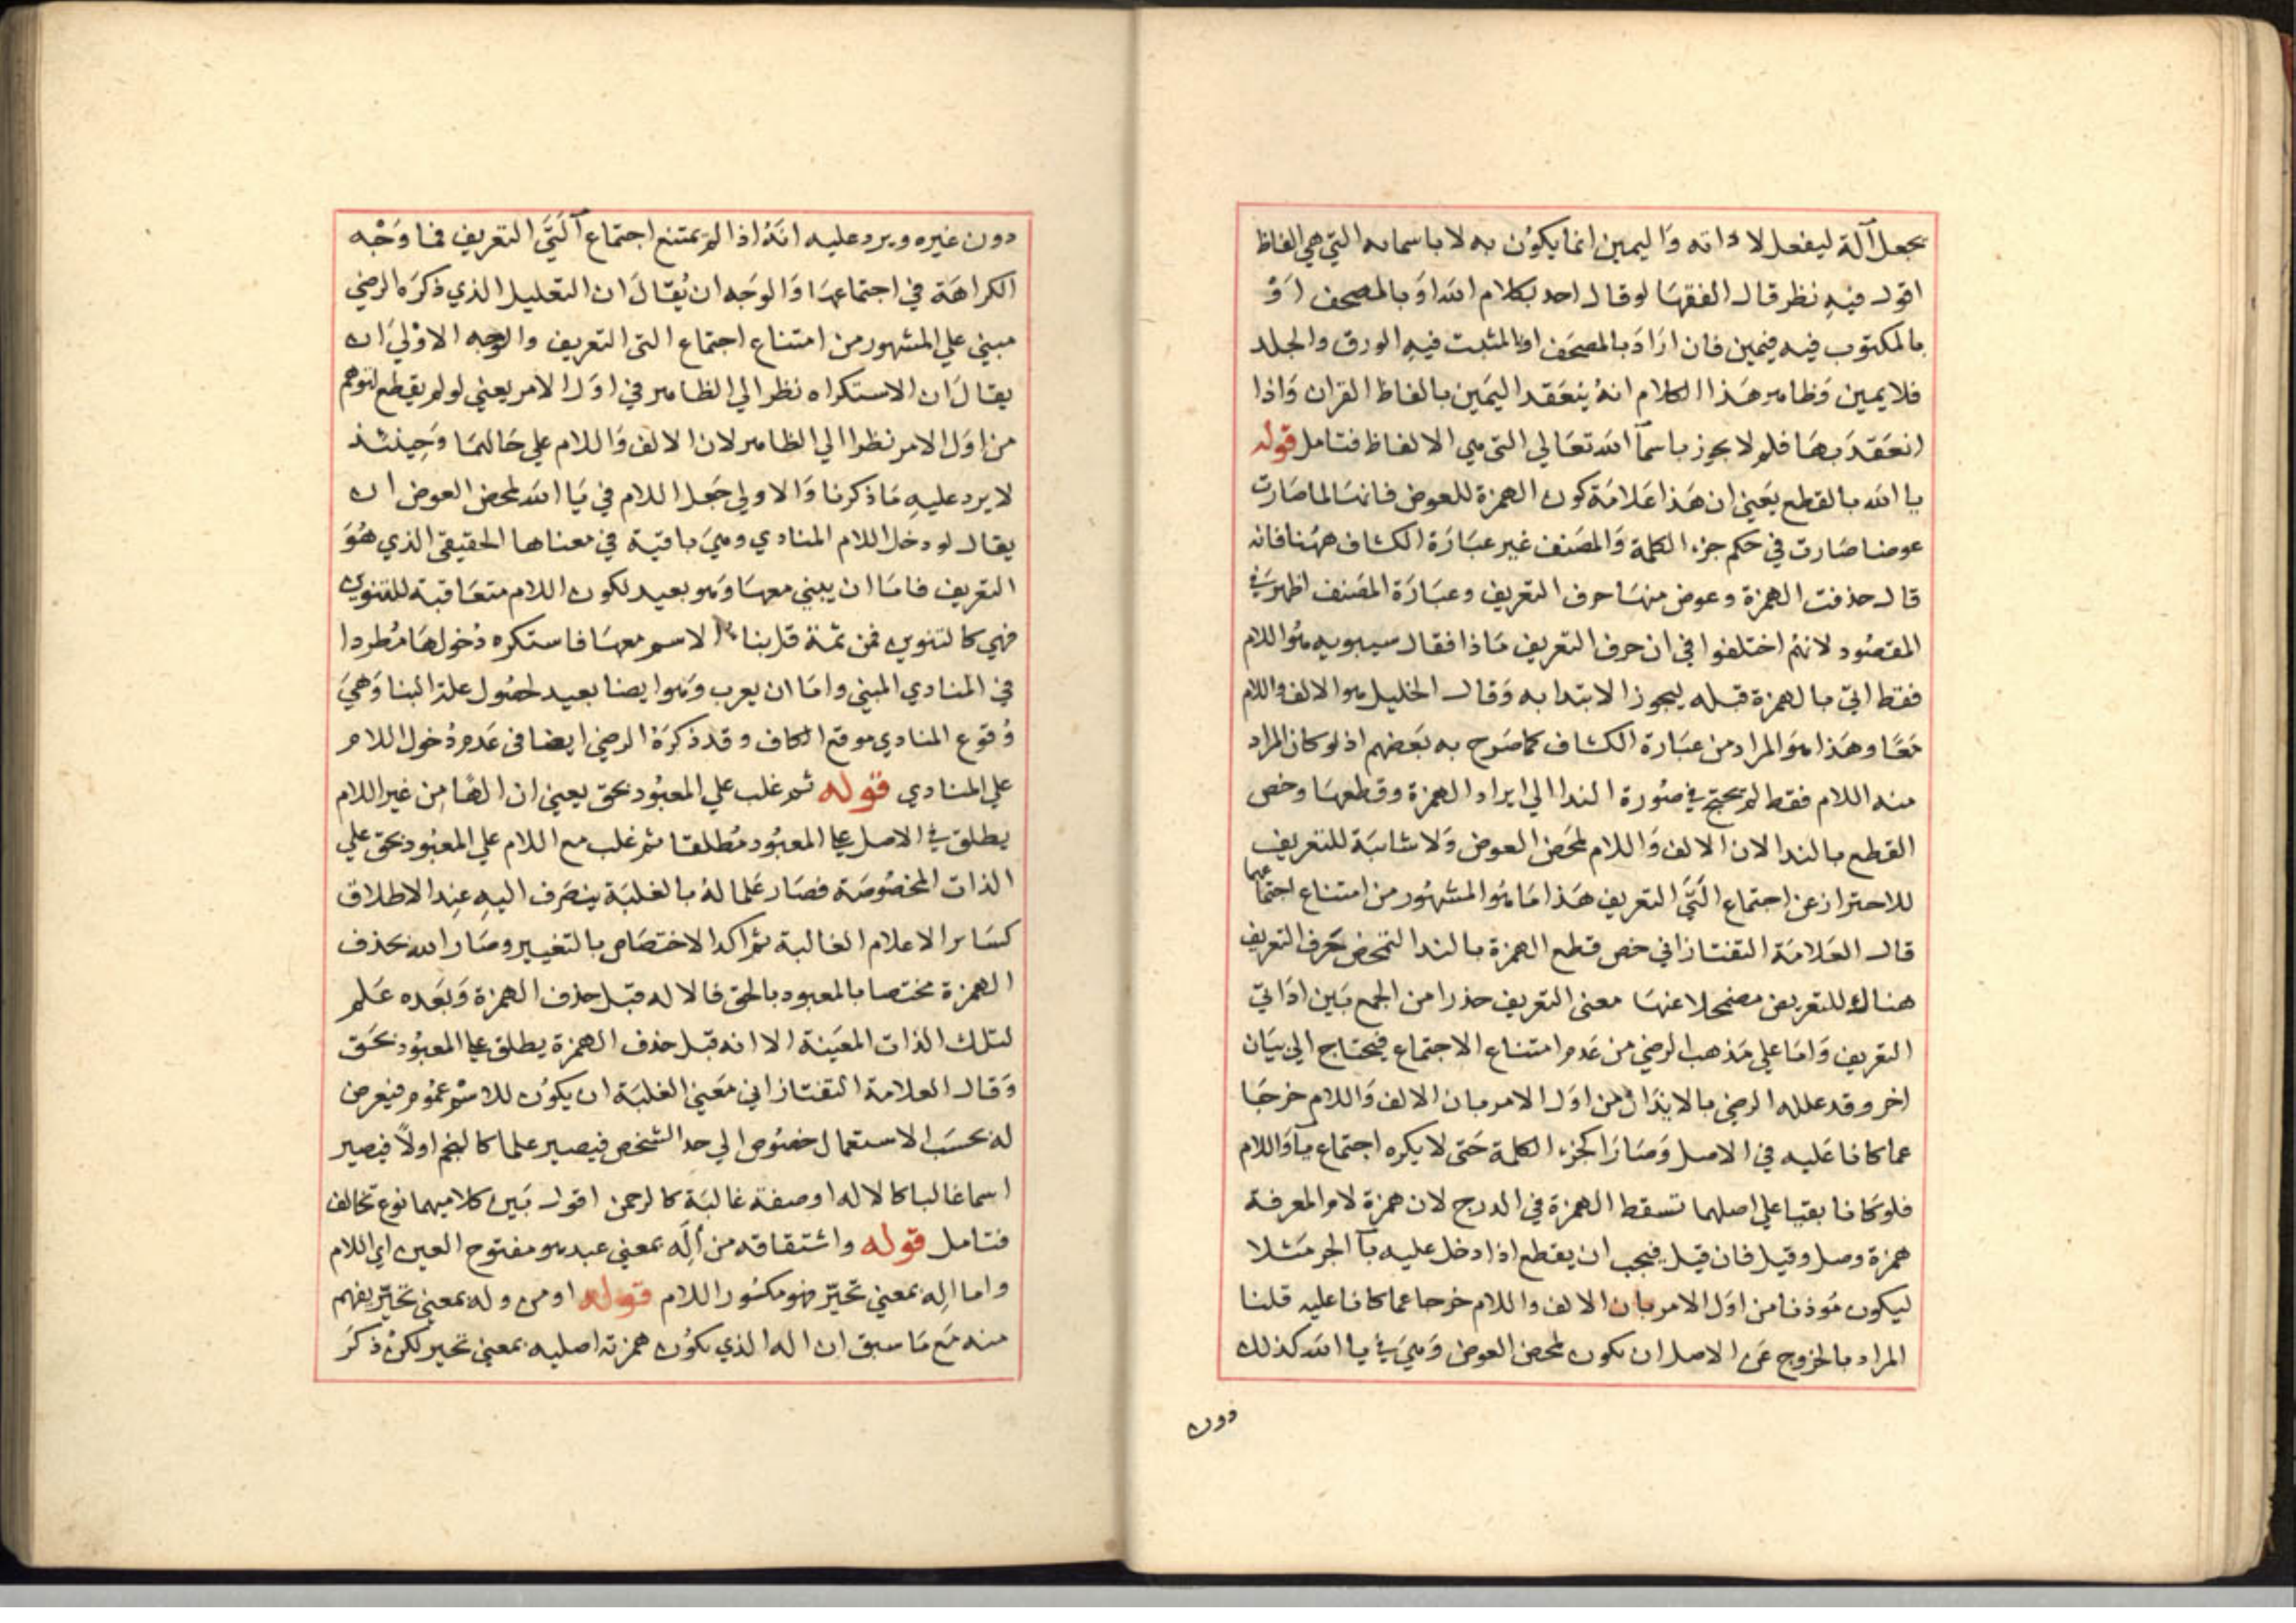 يجعل آلة ليفعل لا ذاته وَاليمين انما يكوُن به لا باسمائه التي هي الفاظ
اقول فيهِ نظر قال الفقهَا لو قال احد بكلام الله اوَ بالمصحف اوَ
بالمكتوب فيه فيمين فان ارَادَ بالمصحَف او بالمثبت فيهِ الورق والجلد
فلا يمين وَظاهر هَذا الكلام انهُ ينعَقد اليمَين بالفاظ القران وَاذا
انعَقدَ بهَا فلم لا يجوز باسمآ الله تعَالي التي هي الالفاظ فتامل قوله
يا الله بالقطع يعَني ان هَذا عَلامَة كون الهمزة للعوض فانهَا لما صَارت
عوضا صَارت في حكم جزء الكلمة وَالمصَنف غير عبَارَة الكشاف ههُنا فانه
قال حذفت الهمزة وعوض منهَا حرف التعَريف وعبَارَة المصَنف اظهر في
المقصُود لانهُم اختلفوا في ان حرف التعريف مَاذا فقال سيبويه هُو اللام
فقط اتيَ بالهمزة قبله ليجوز الابتدا به وَقال الخليل هو الالف واللام
مَعًا وهَذا هوَ المراد من عبَارة الكشاف كما صَرح به بَعَضهم اذ لو كان المراد
منه اللام فقط لم يحتج في صُورة الندا الي ايراد الهمزة وقطعهَا وخص
القطع بالندا لان الالف وَاللام لمحَض العوض وَلا شائبَة للتعَريف
للاحتراز عن اجتماع التَيَ التعريف هَذا مَا هُو المشهُور من امتناع اجتماعهما
قال العَلامَة التفتازاني خص قطع الهمزة بالندا لتمحض حَرف التعريف
هناك للتعريض مضمحلا عنهَا معنى التعَريف حذرا من الجمع بَين اداتي
التعَريف وَامَا علي مَذهب الرضي من عَدم امتناع الاجتماع فيحتاج الي بيَان
اخر وقد علله الرضي بالايذَان من اوَل الامر بان الالف وَاللام خرجَا
عما كانا عَليه في الاصل وَصَارَا كجزء الكلمة حَتى لا يكره اجتماع يآ وَاللام
فلو كَانا بقيا علي اصلهما تسقط الهمزة في الدرج لان همزة لام المعرفة
همزة وصل وقيل فان قيل فيجب ان يقطع اذا دخل عليه بآ الجر مَثلا
ليكون مُوذنا من اوَل الامر بان الالف واللام خرجا عما كانا عليه قلنا
المراد بالخروج عَن الاصل ان يكون لمحض العوض وَهيَ في يا الله كذلك
دون
دون غيره ويرد عليه انَهُ اذا لم يمتنع اجتماع آلَتَيَ التعريف فما وَجْه
الكراهَة في اجتماعهَا وَالوجَه ان يُقَالَ ان التعليل الذي ذكرَه الرضي
مبني علي المشهور من امتناع اجتماع التى التعريف والوجه الاوْليَ ان
يقالَ ان الاستكراه نظر الي الظاهر في اوَل الامر يعني لو لم يقطع لتوهم
من اوَل الامر نظرا الي الظاهر لان الالف وَاللام علي حَالهَما وَحِينئذ
لا يرد عليهِ مَا ذكرنا وَالاولي جَعل اللام في يَا الله لمحض العوض ان
يقال لو دخل اللام المنادي وهيَ باقيَة في معناها الحقيقي الذي هُوَ
التعريف فامَا ان يبني معهَا وَهو بعيد لكون اللام متعَاقبة للتنوين
فهي كالتنوين فمن ثمَة قل بناء الاسم معهَا فاستكره دُخولهَا مُطردا
في المنادي المبني وامَا ان يعرب وَهو ايضا بعيد لحصُول علة البنا وَهيَ
وُقوع المنادي موقع الكاف وقد ذكرَهَ الرضي ايضا في عَدم دُخول اللام
علي المنادي قوله ثم غلب علي المعبُود بحق يعني ان الهًا من غير اللام
يطلق في الاصل علي المعبُود مُطلقا ثم غلب مع اللام علي المعَبُود بحق علي
الذات المخصُوصَة فصَار عَلما لهُ بالغلبَة ينصَرف اليهِ عِند الاطلاق
كسَائر الاعلام الغالبة ثم اكد الاختصَاص بالتغيير وصَار الله بحذف
الهمزة مختصا بالمعبود بالحق فالاله قبَل حذف الهمزة وَبعَده عَلم
لتلك الذات المعَينة الا انه قبل حذف الهمزة يطلق علي المعبُود بحَق
وَقال العلامَة التفتازاني مَعَني الغلبَة ان يكوُن للاسْم عمُوم فيعرض
له بحسَب الاستعمال خصُوص الي حد الشخص فيصير علما كالنجم اولاً فيصير
اسما غالبا كالاله او صفة غالبَة كالرحمن اقول بَين كلاميهما نوع تخالف
فتامل قوله واشتقاقه من اَلَه بمعني عبد هو مفتوح العين اي اللام
واما اَلِه بمعني تحَيّر فهو مكسُور اللام قوله او من وله بمعني تحَيّر يفهم
منه مَع مَا سبق ان اله الذي يكوُن همزته اصليه بمعني تحير لكنْ ذكرَ